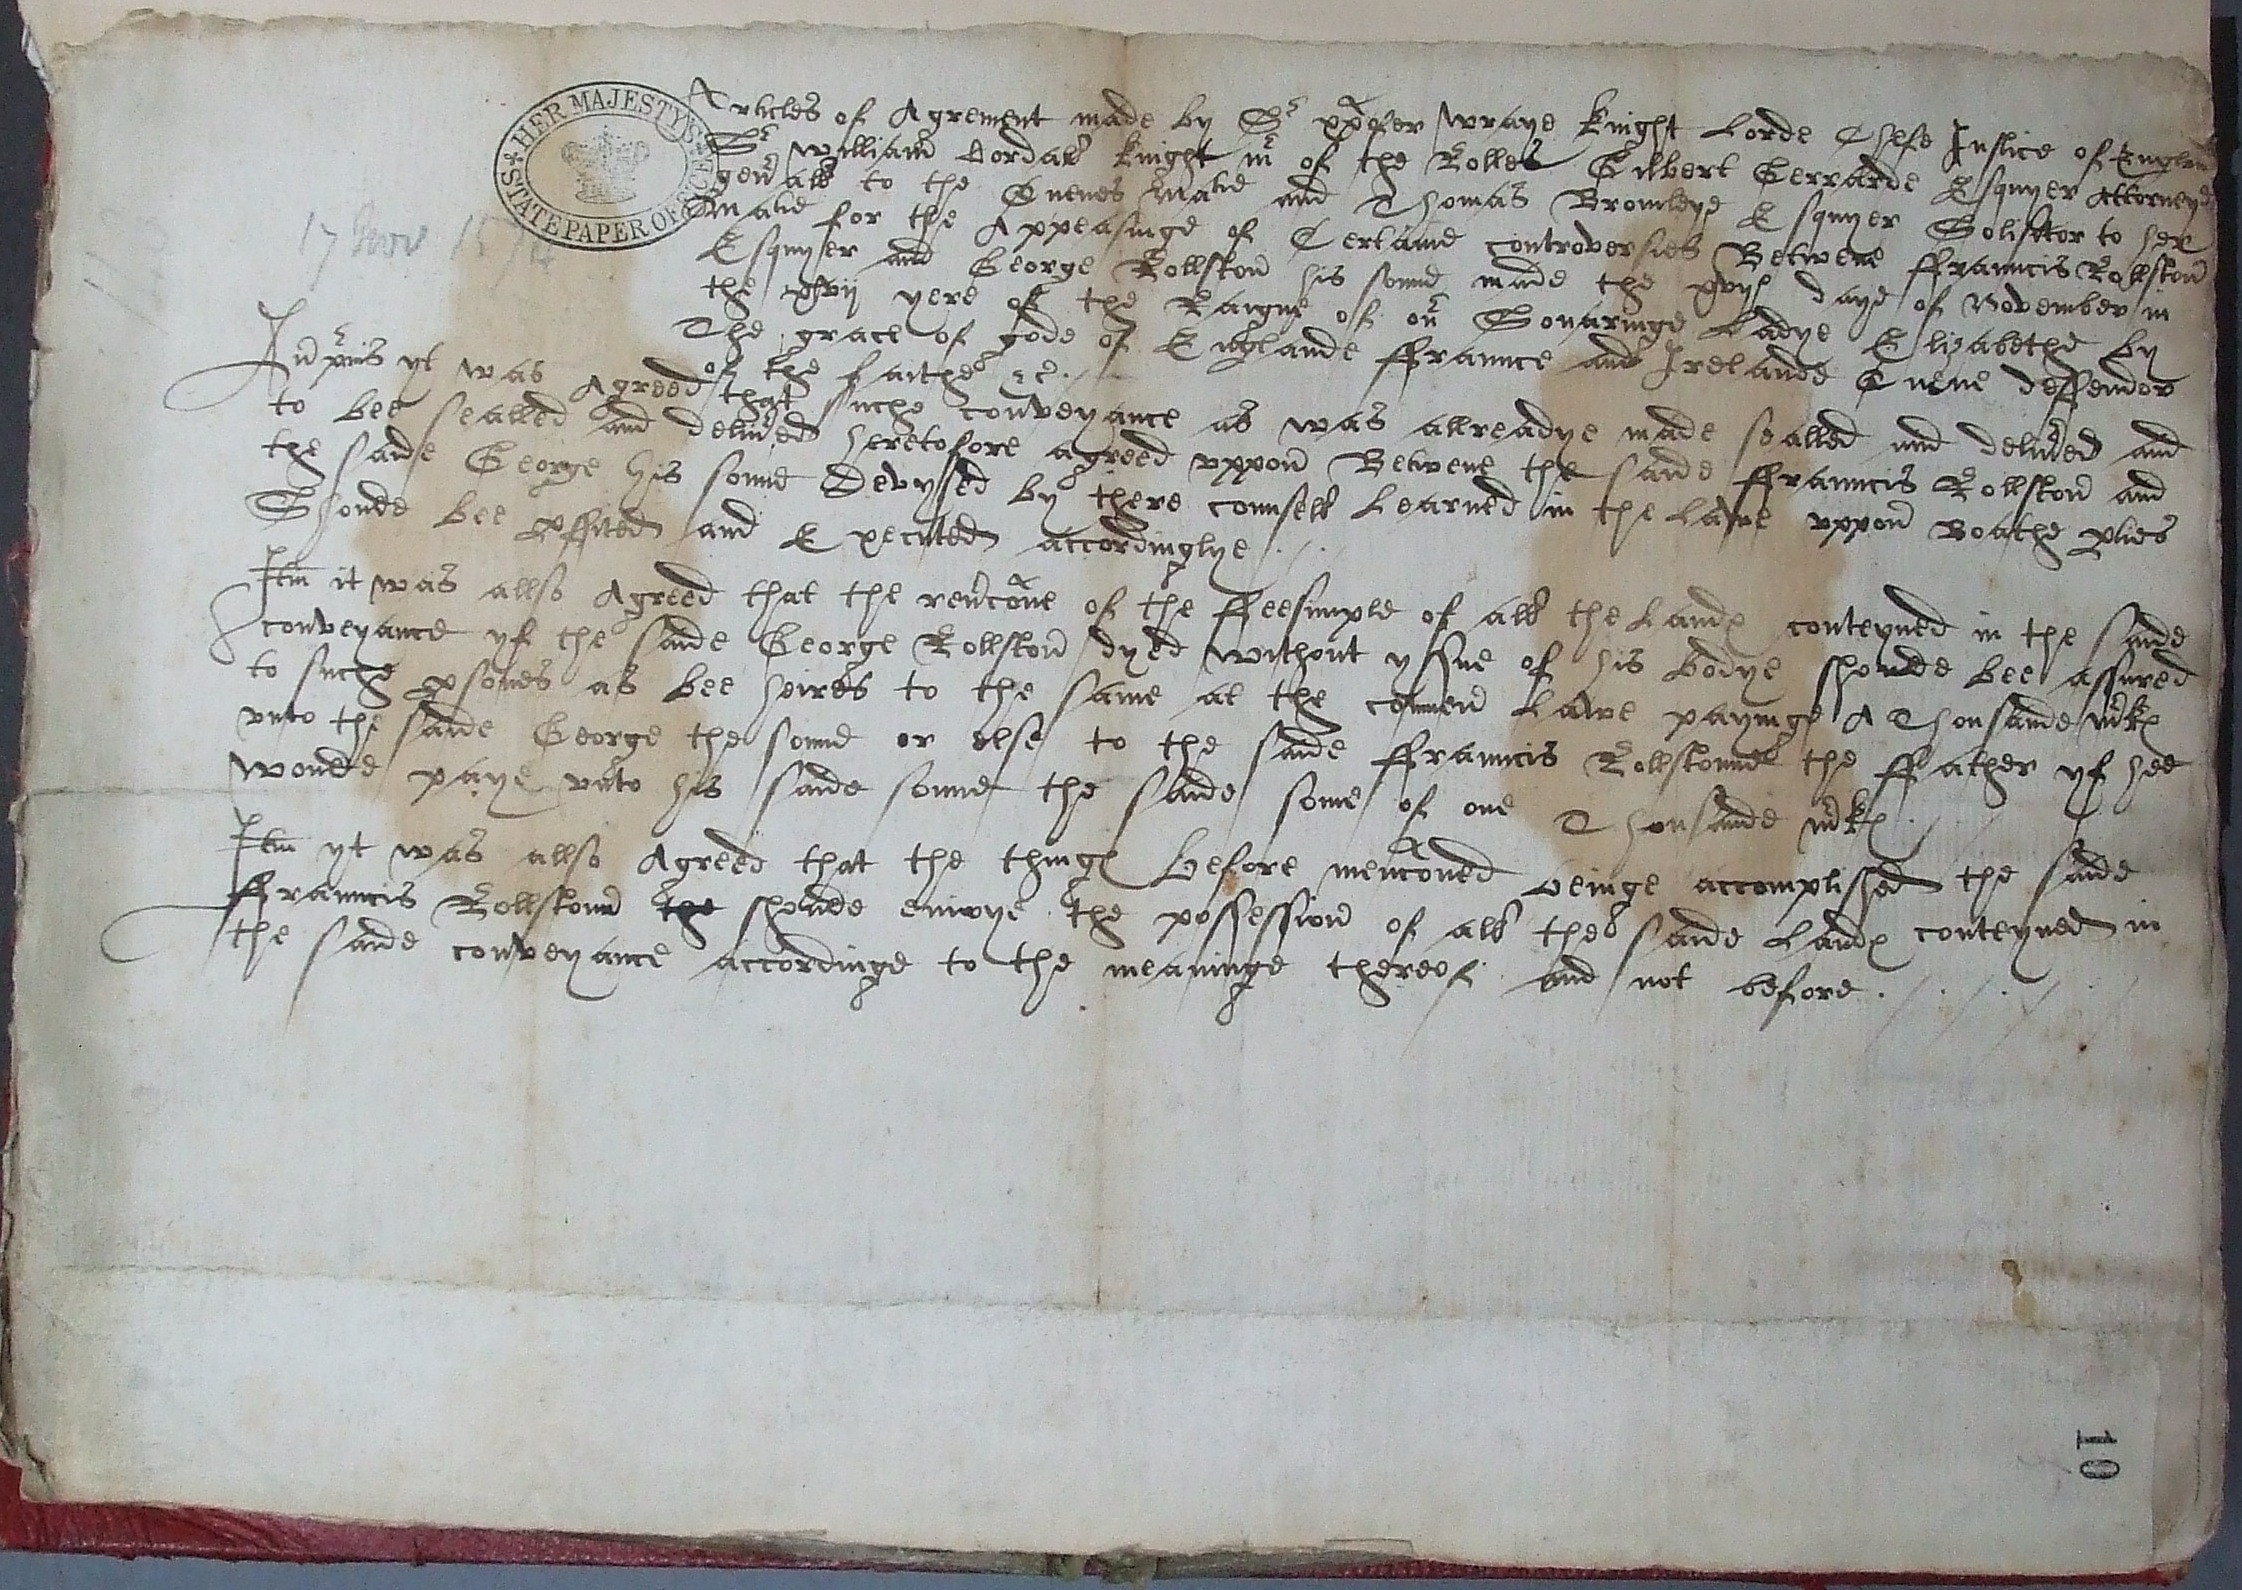 HER MAJESTY'S STATE PAPER OFFICE
17 Nov 1574
Articles of Agrement made by Sr xpofer wraye knight Lorde Chefe Justice of Englande
Sr william Cordall knight mr of the Rolles Gilbert Gerrarde Esquyer Attorneye
genrall to the Quenes Matie and Thomas Bromleye Esquyer Solisitor to her
Matie for the Appeasinge of Certaine controversies Betwene ffrauncis Rollston
Esquyer and George Rollston his sonne made the xvijth daye of November in
the xvij yere of the Raigne of or Sovaringe Ladye Elizabethe By
The grace of gode of Englande ffraunce and Irelande Quene deffendor
of the faithe &c.
Inprimis yt was Agreed that suche conveyance as was allreadye made sealled and delivred and
to bee sealled and delivred heretofore agreed uppon Betwene the saide ffrauncis Rollston and
the saide George his sonne Devyssed by there counsell Learned in the Lawe uppon Boathe pties
Shoulde bee pffited and Executed accordinglye
Itm it was allso Agreed that the revrcone of the ffeesimple of all the Landes conteyned in the saide
conveyance yf the saide George Rollston dyed without yssue of his bodye shoulde bee assured
to suche psones as bee heires to the same at the common Lawe payinge A Thousande mrkes
unto the saide George the sonne or else to the saide ffrauncis Rollstonne the ffather yf hee
woulde paye unto his saide sonne the saide some of one Thousande mrkes
Itm yt was allso Agreed that the thinges before menconed beinge accomplished the saide
ffrauncis Rollston the shoulde enioye the possession of all the saide Landes conteyned in
the saide conveyance accordinge to the meaninge thereof and not before.
10